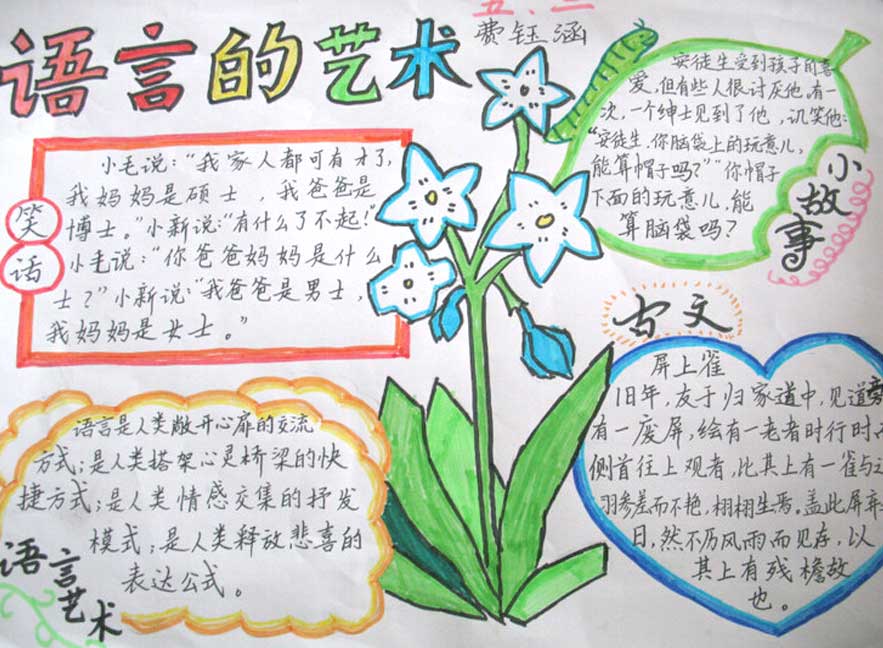 语言的艺术
五、二
费钰涵
笑话
小毛说："我家人都可有才了,
我妈妈是硕士，我爸爸是
博士。"小新说："有什么了不起!"
小毛说："你爸爸妈妈是什么
士？"小新说："我爸爸是男士，
我妈妈是女士。"
安徒生受到孩子的喜
爱,但有些人很讨厌他。有一
次，一个绅士见到了他，讥笑他:
"安徒生,你脑袋上的玩意儿,
能算帽子吗？""你帽子
下面的玩意儿,能
算脑袋吗？
小故事
古文
屏上雀
旧年，友于归家道中,见道旁
有一废屏,绘有一老者时行时
侧首往上观者,比其上有一雀与
羽参差而不艳,栩栩生焉。盖此屏弃
日,然不历风雨而见存,以
其上有残檐故
也。
语言是人类敞开心扉的交流
方式;是人类搭架心灵桥梁的快
捷方式;是人类情感交集的抒发
模式;是人类释放悲喜的
表达公式。
语言艺术